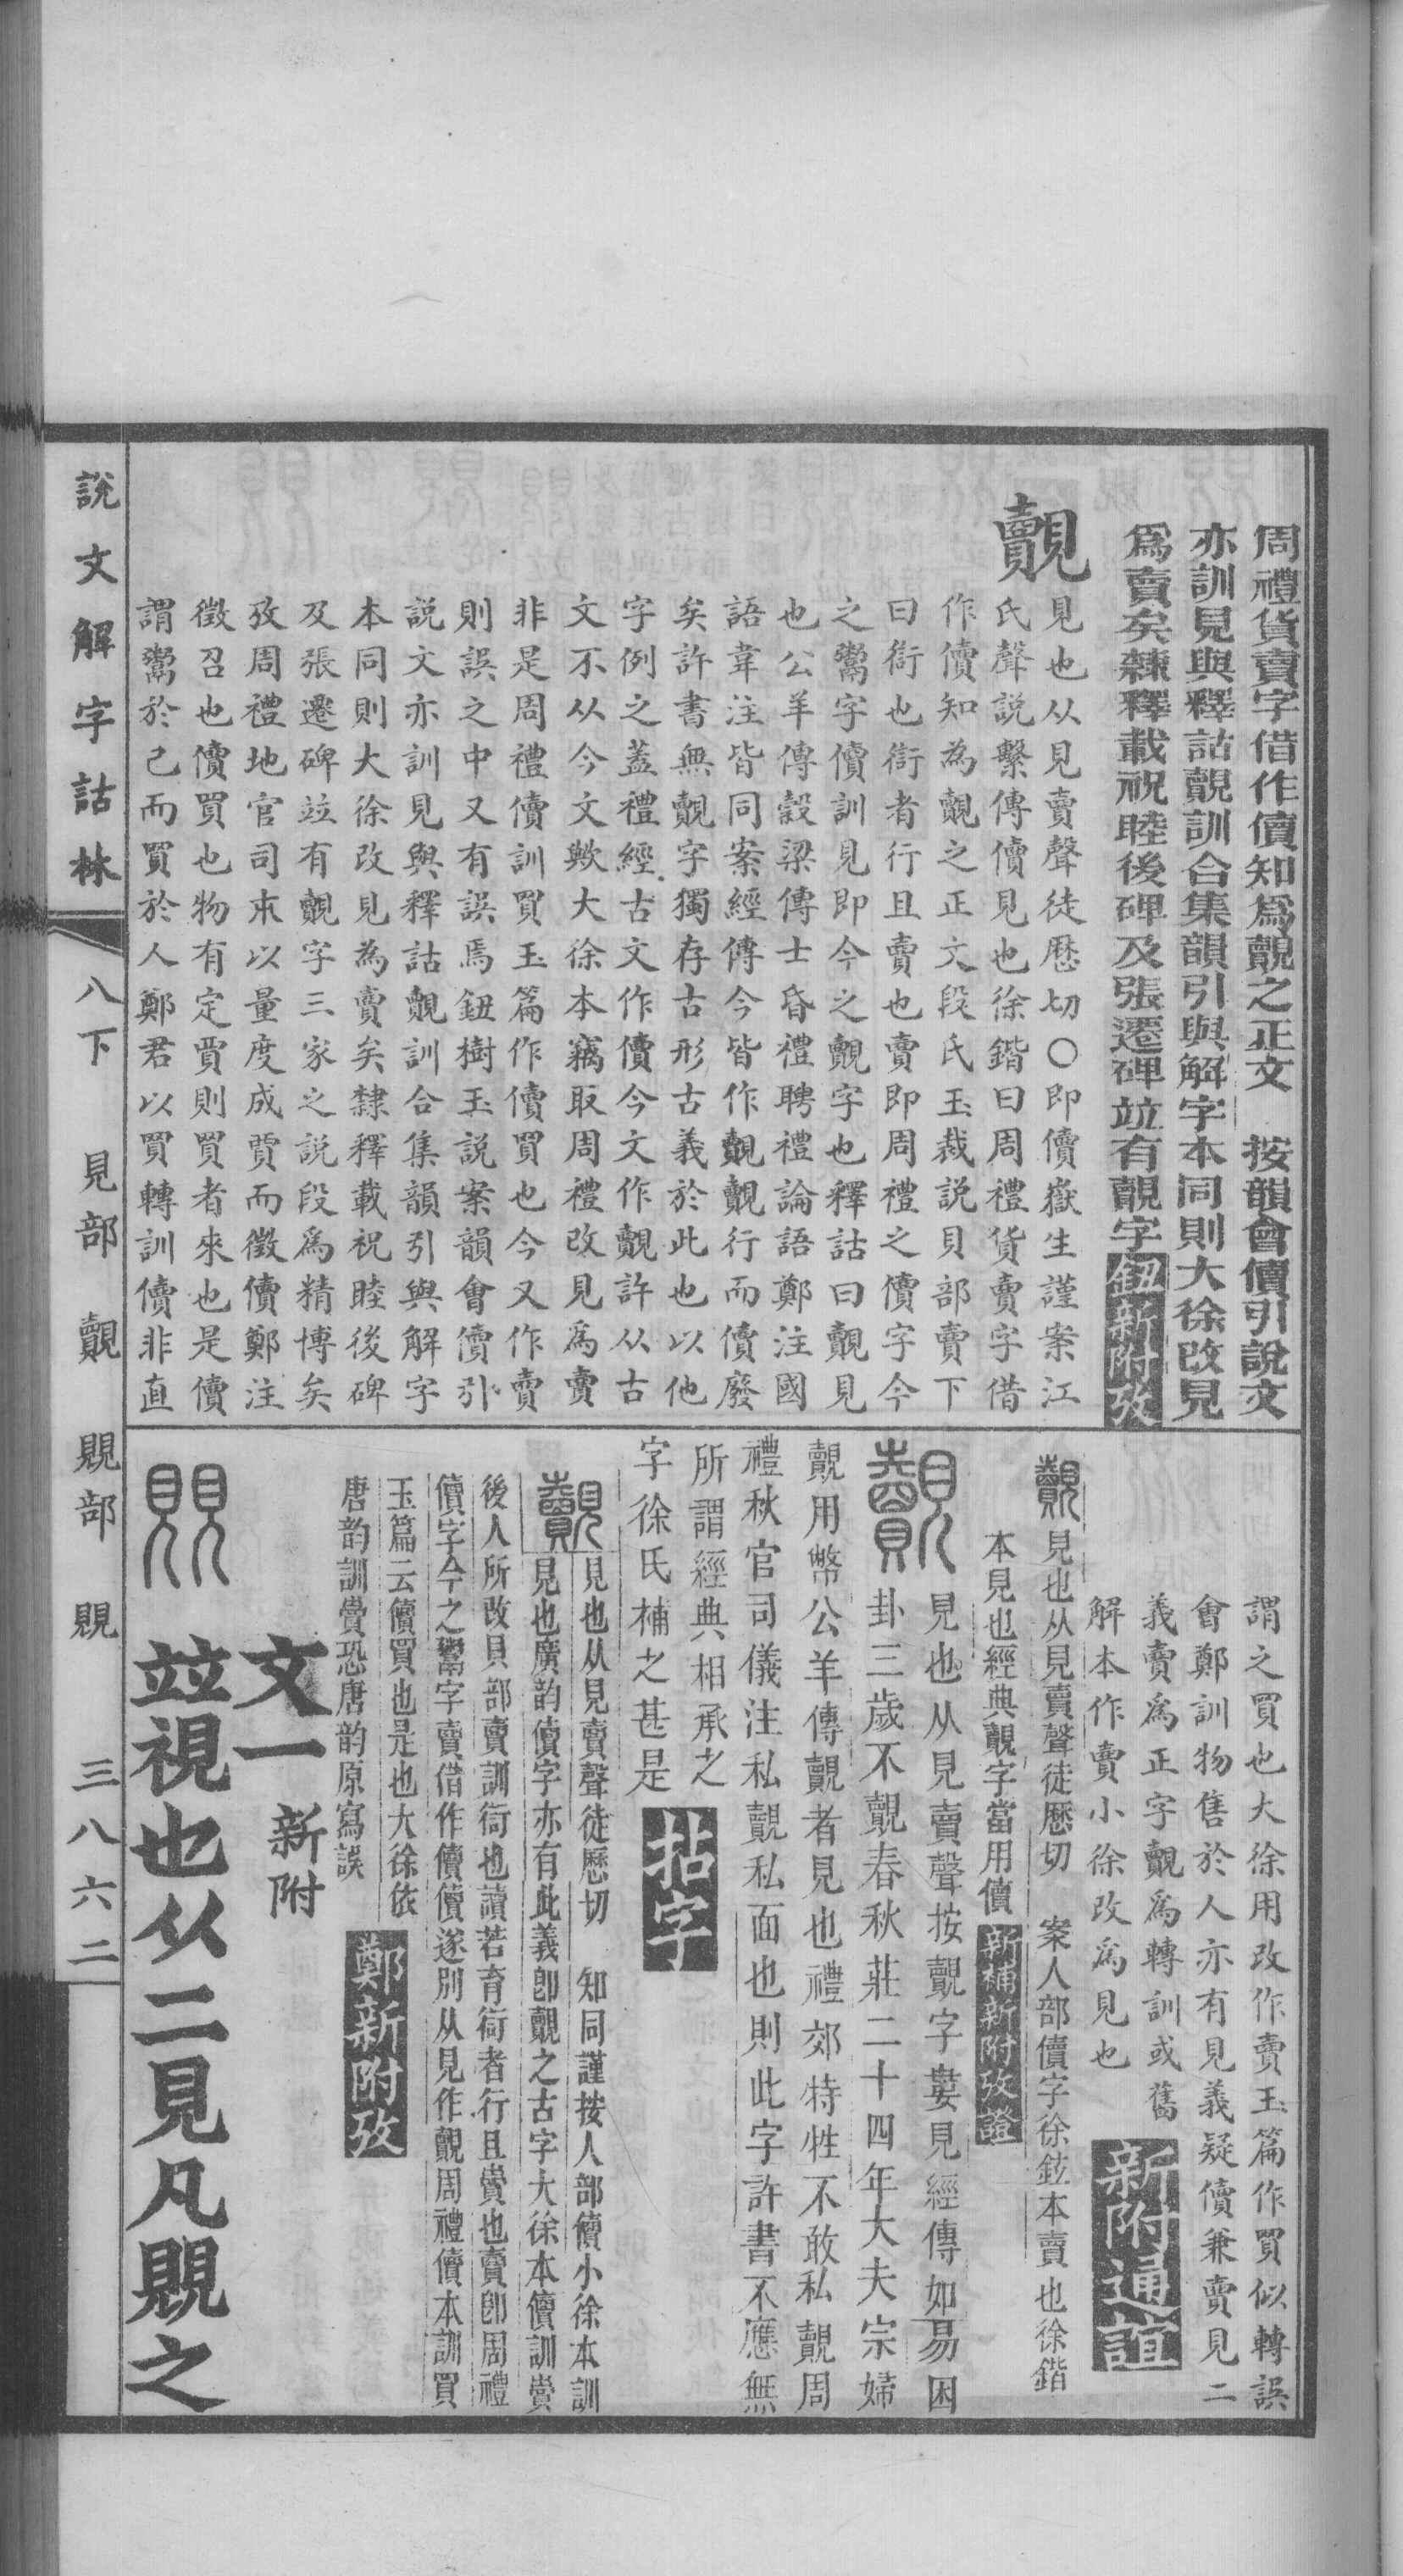 周禮貨賣字借作儥知爲覿之正文　按韻會儥引說文
亦訓見與釋詁覿訓合集韻引與解字本同則大徐改見
爲賣矣隸釋載祝睦後碑及張遷碑竝有覿字鈕新附攷
覿
見也从見賣聲徒歷切〇即儥嶽生謹案江
氏聲說繫傳儥見也徐鍇曰周禮貨賣字借
作儥知為覿之正文段氏玉裁說貝部賣下
曰衒也衒者行且賣也賣即周禮之儥字今
之鬻字儥訓見即今之覿字也釋詁曰覿見
也公羊傳穀梁傳士昏禮聘禮論語鄭注國
語韋注皆同案經傳今皆作覿覿行而儥廢
矣許書無覿字獨存古形古義於此也以他
字例之蓋禮經古文作儥今文作覿許从古
文不从今文歟大徐本竊取周禮改見爲賣
非是周禮儥訓買玉篇作儥買也今又作賣
則誤之中又有誤焉鈕樹玉說案韻會儥引
說文亦訓見與釋詁覿訓合集韻引與解字
本同則大徐改見為賣矣隸釋載祝睦後碑
及張遷碑竝有覿字三家之說段爲精博矣
攷周禮地官司市以量度成賈而徵儥鄭注
徵召也儥買也物有定賈則買者來也是儥
謂鬻於己而買於人鄭君以買轉訓儥非直
謂之買也大徐用改作賣玉篇作買似轉誤
會鄭訓物售於人亦有見義疑儥兼賣見二
義賣爲正字覿爲轉訓或舊
解本作賣小徐改爲見也
新附通誼
覿見也从見賣聲徒歷切　案人部儥字徐鉉本賣也徐鍇
本見也經典覿字當用儥新補新附攷證
覿
見也从見賣聲按覿字婁見經傳如易困
卦三歲不覿春秋莊二十四年大夫宗婦
覿用幣公羊傳覿者見也禮郊特牲不敢私覿周
禮秋官司儀注私覿私面也則此字許書不應無
所謂經典相承之
字徐氏補之甚是
拈字
覿
見也从見賣聲徒歷切　知同謹按人部儥小徐本訓
見也廣韵儥字亦有此義卽覿之古字大徐本儥訓賣
後人所改貝部賣訓衒也讀若育衒者行且賣也賣卽周禮
儥字今之鬻字賣借作儥儥遂別从見作覿周禮儥本訓買
玉篇云儥買也是也大徐依
唐韵訓賣恐唐韵原寫誤
鄭新附攷
文一
新附
覞
竝視也从二見凡覞之
說文解字詁林
八下
見部
覿
覞部
覞
三八六二